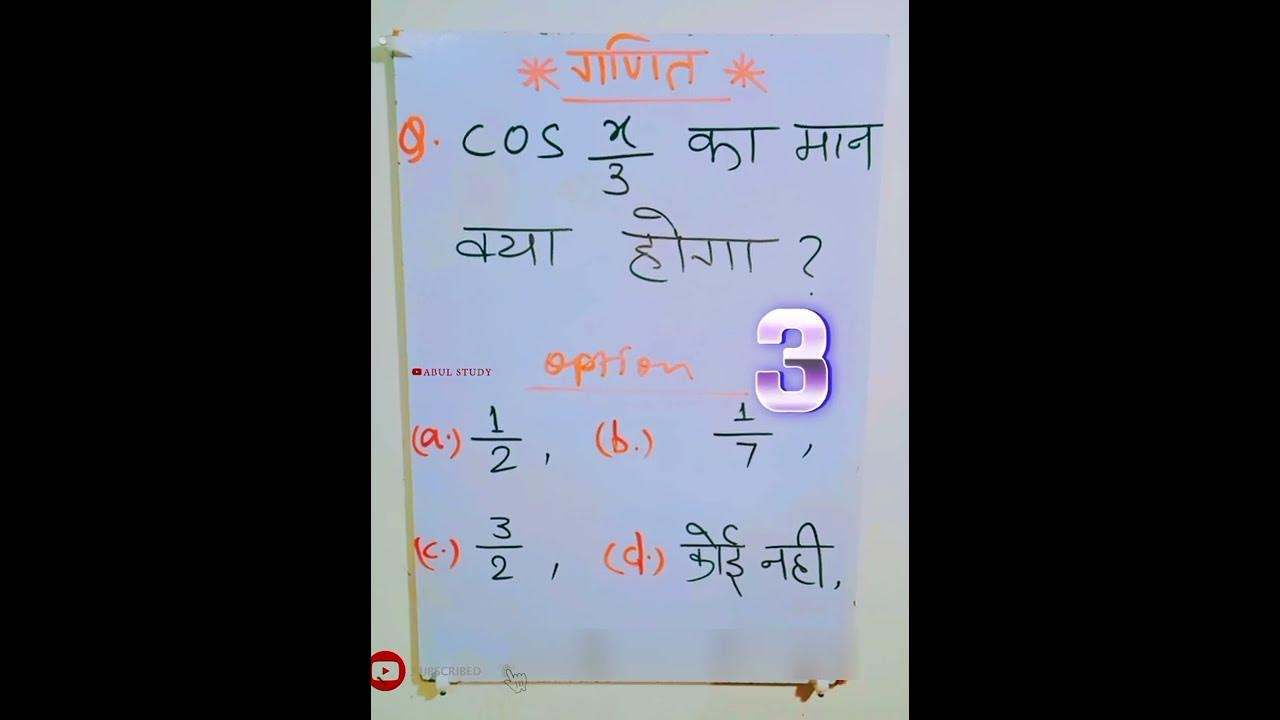 * गणित *
Q. cos x/3 का मान
क्या होगा ?
3
ABUL STUDY
option
(a.) 1/2 , (b.) 1/7 ,
(c.) 3/2 , (d.) कोई नही,
UBSCRIBED